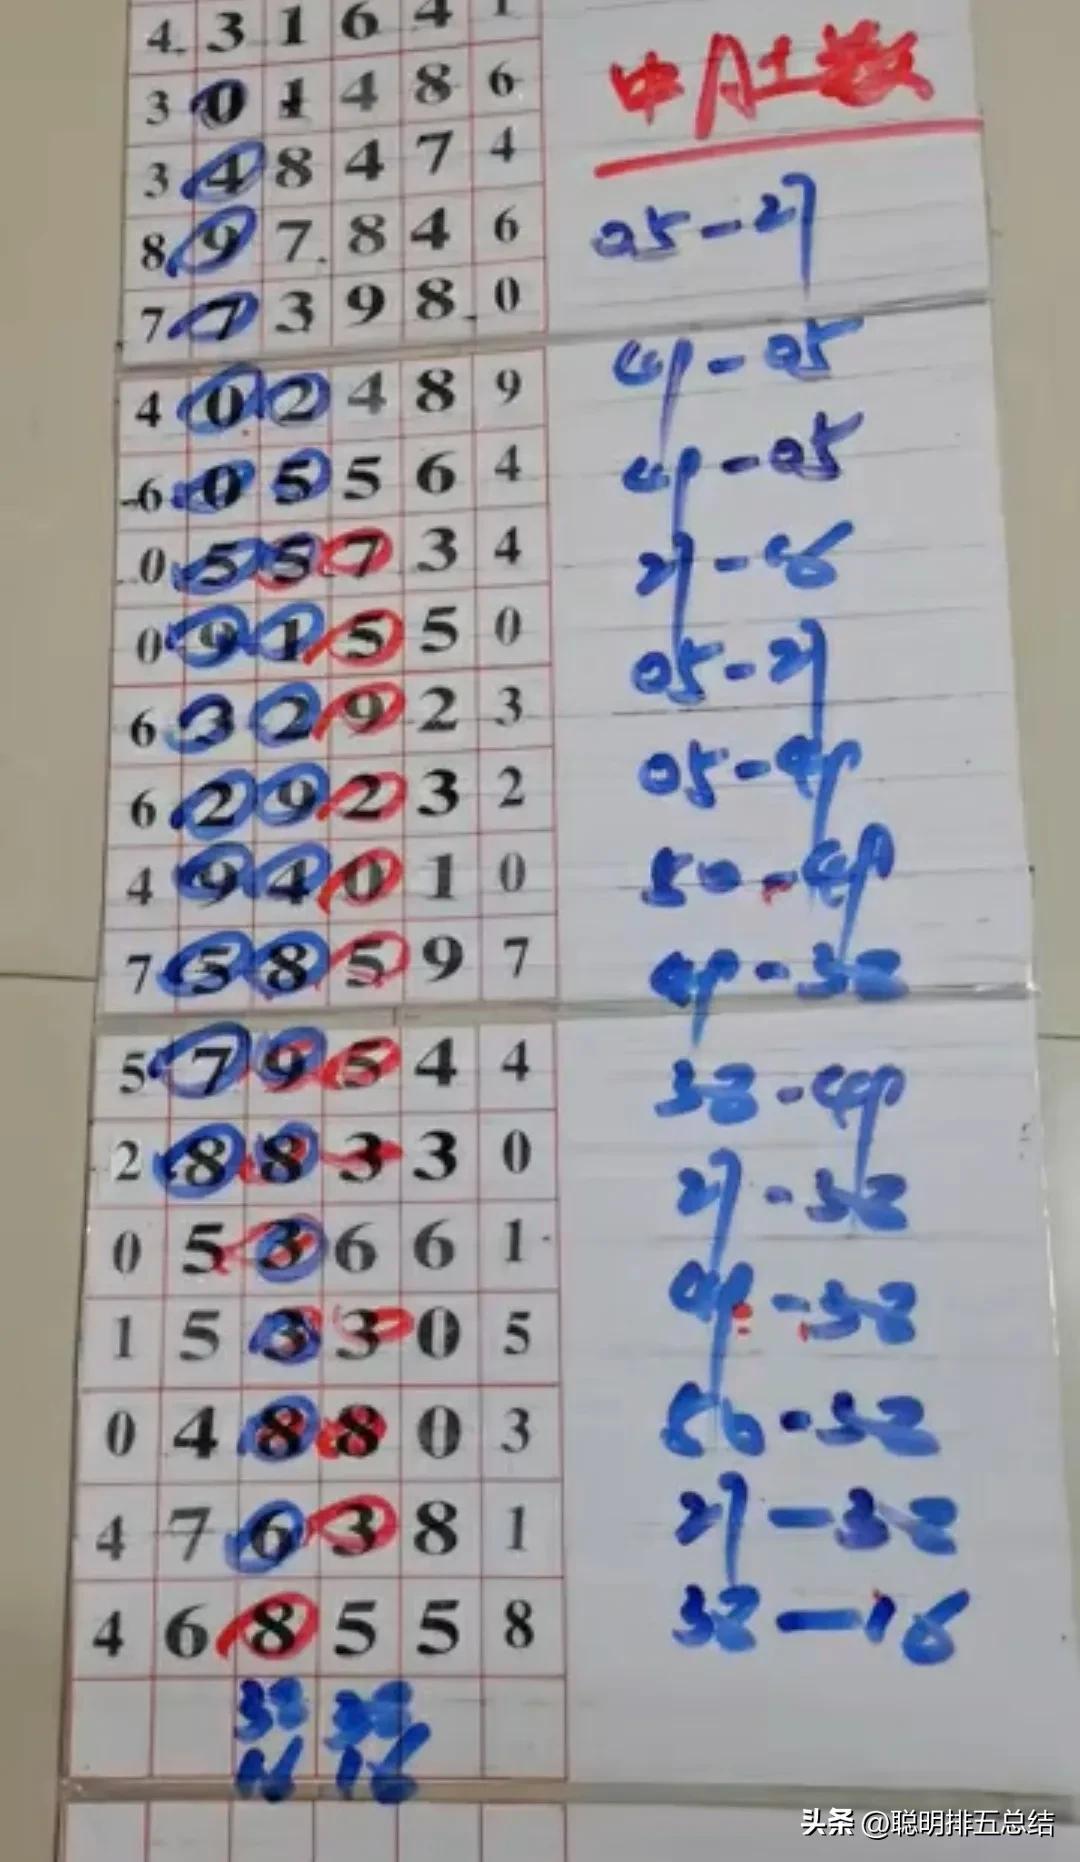 4. 3 1 6 4 1
3 0 1 4 8 6
中 A 土数
3 4 8 4 7 4
8 9 7. 8 4 6 05-27
7 7 3 9 8. 0
4 0 2 4 8 9 49-05
6 0 5 5 6 4 49-05
0 5 5 7 3 4 27-16
0 9 1 5 5 0 05-27
6 3 2 9 2 3 05-49
6 2 9 2 3 2 50-49
4 9 4 0 1 0
7 5 8 5 9 7 49-38
5 7 9 5 4 4 38-49
2 8 8 3 3 0 27-38
0 5 3 6 6 1 49-38
1 5 3 3 0 5
0 4 8 8 0 3 50-38
4 7 6 3 8 1 27-38
4 6 8 5 5 8 38-16
38 38
16 16
头条 @聪明排五总结